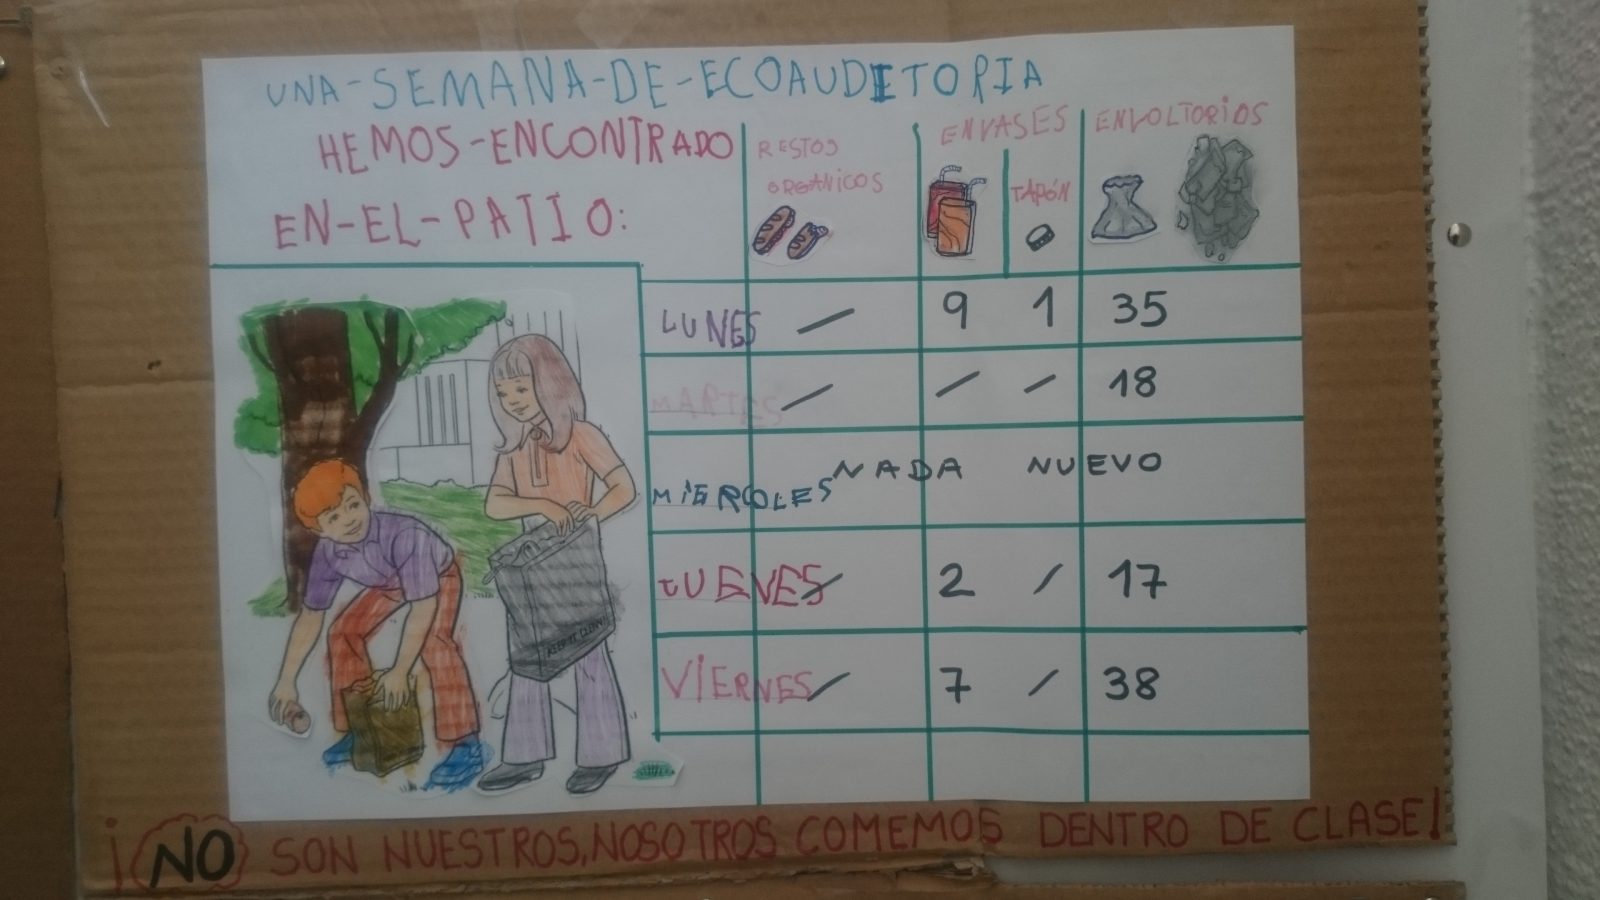 UNA-SEMANA-DE-ECOAUDITORIA
HEMOS-ENCONTRADO
EN-EL-PATIO:
RESTOS
ORGANICOS
ENVASES
TAPÓN
ENVOLTORIOS
LUNES / 9 1 35
MARTES / / / 18
MIERCOLES NADA NUEVO
JUEVES / 2 / 17
VIERNES / 7 / 38
KEEP IT CLEAN!
¡NO SON NUESTROS, NOSOTROS COMEMOS DENTRO DE CLASE!